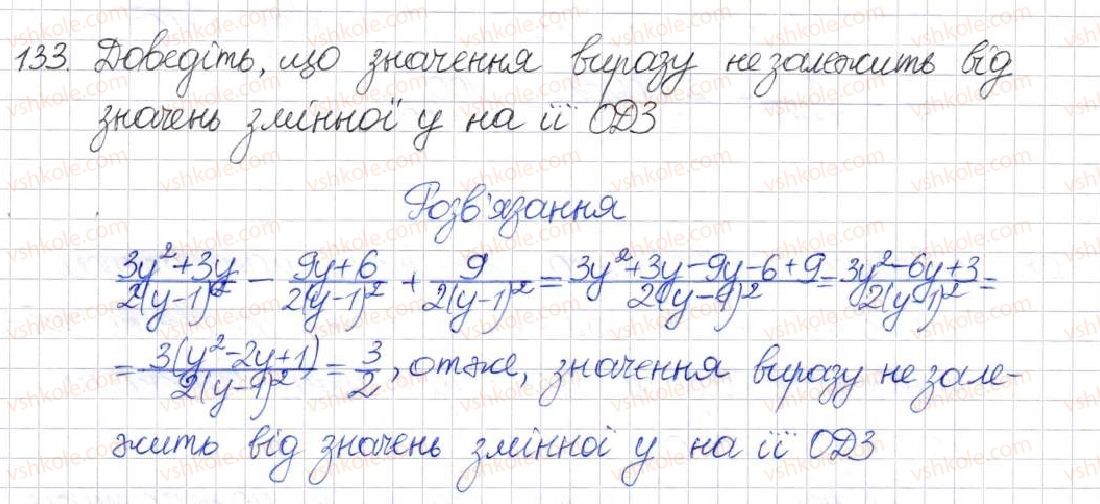 133. Доведіть, що значення виразу не залежить від
значень змінної y на її ОДЗ
Розв'язання
(3y²+3y)/(2(y-1)²) - (9y+6)/(2(y-1)²) + 9/(2(y-1)²) = (3y²+3y-9y-6+9)/(2(y-1)²) = (3y²-6y+3)/(2(y-1)²) =
= (3(y²-2y+1))/(2(y-1)²) = 3/2, отже, значення виразу не зале-
жить від значень змінної y на її ОДЗ
vshkole.com